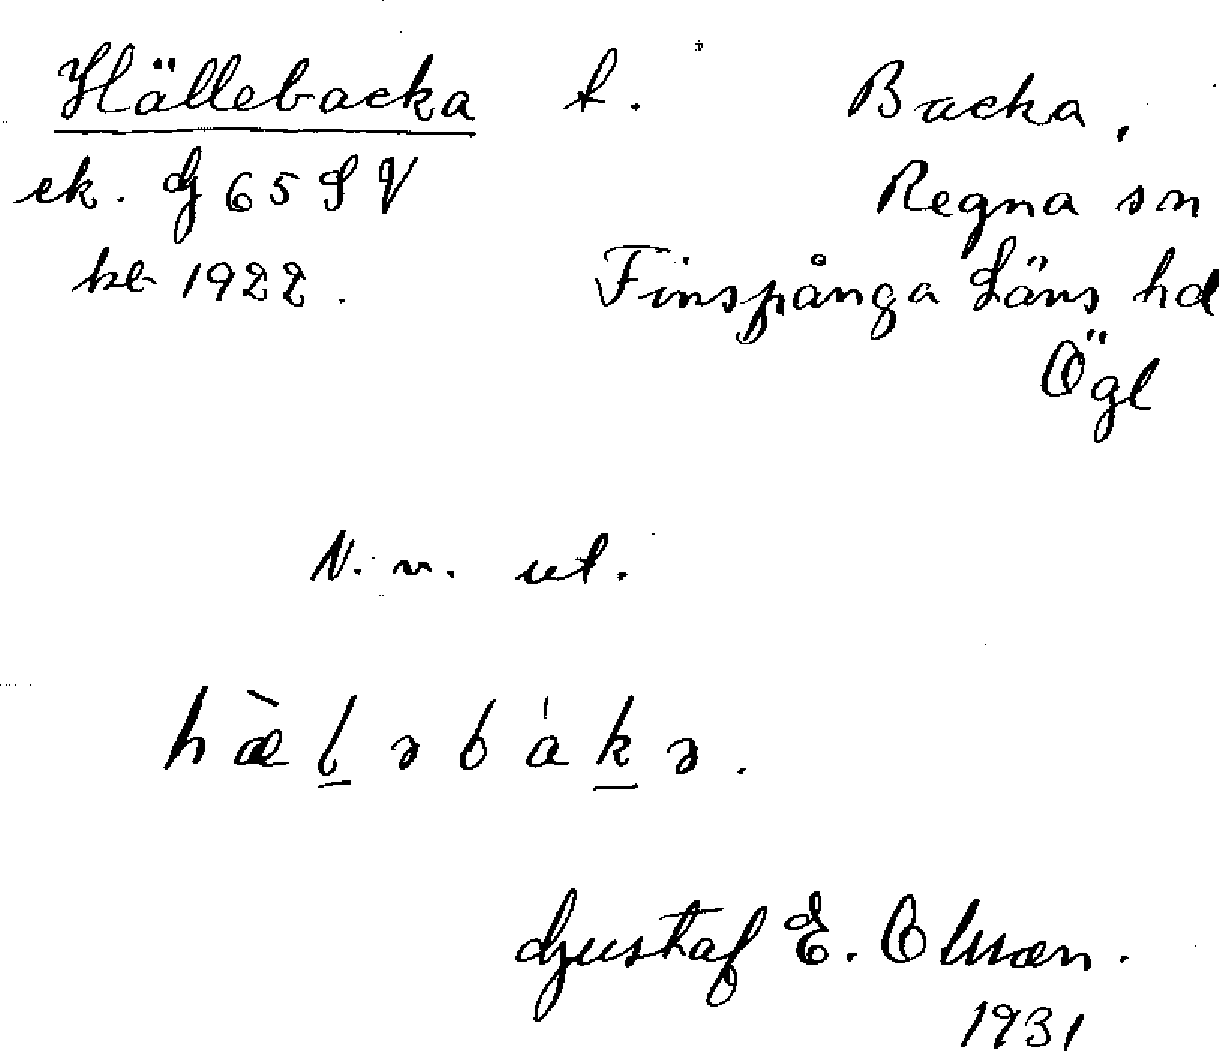 Hällebacka t. Backa,
ek. G 65 SV Regna sn
kb 1922. Finspånga Läns hd
Ögl
N. v. ut.
hæ̀l̲əbák̲ə.
Gustaf E. Olsson.
1931